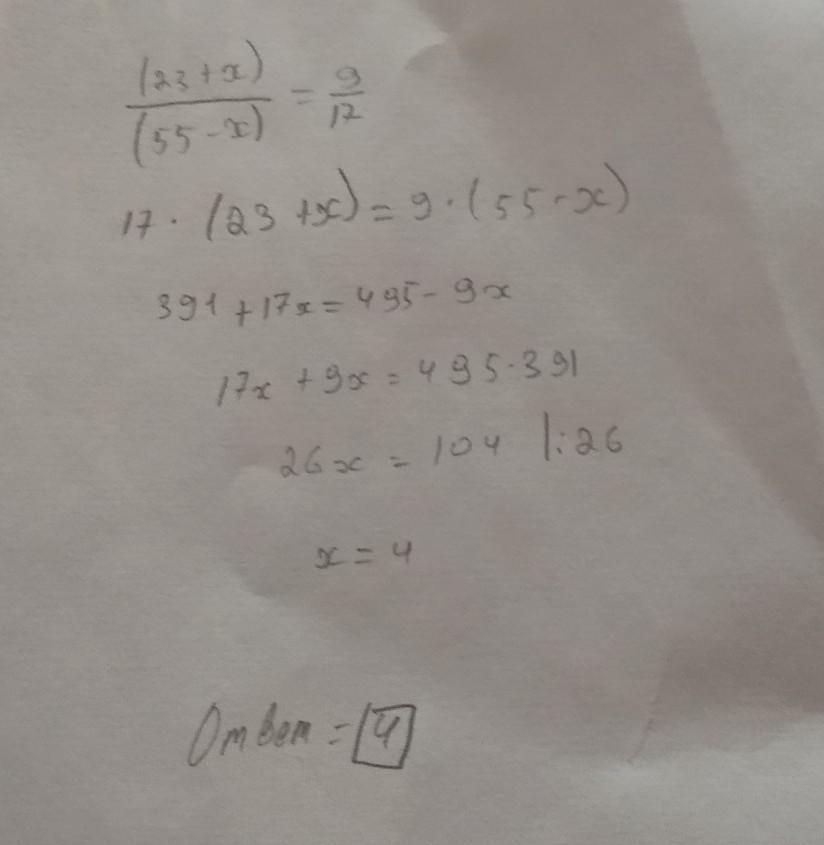 (23+x)
(55-x) = 9/17
17 · (23+x) = 9 · (55-x)
391 + 17x = 495 - 9x
17x + 9x = 495 - 391
26x = 104 |:26
x = 4
Ответ = 4